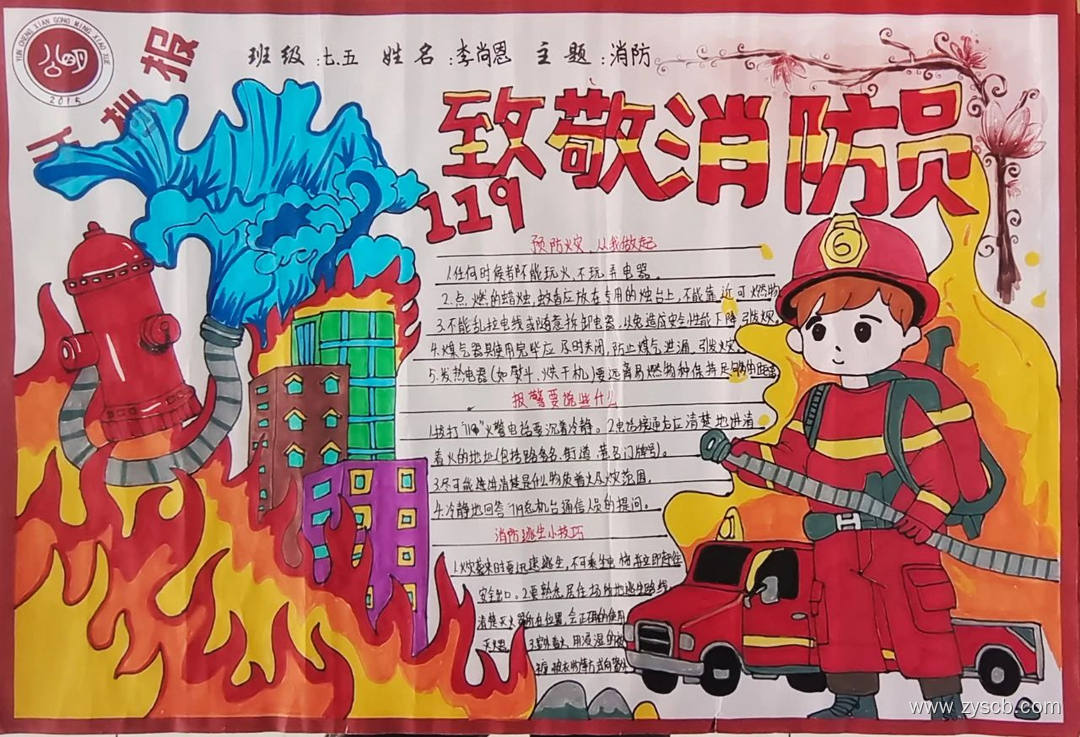 YUN CHENG XIAN GONG MING XIAO XUE
2015
报
班级:七.五 姓名:李尚恩 主题:消防
致敬消防员
119
预防火灾,从我做起
1.任何时候都不能玩火,不玩弄电器。
2.点燃的蜡烛、蚊香应放在专用的烛台上,不能靠近可燃物
3.不能乱拉电线或随意拆卸电器,以免造成安全性能下降引发火灾。
4.煤气器具使用完毕应及时关闭,防止煤气泄漏,引发火灾。
5.发热电器(如熨斗、烘干机)要远离易燃物和保持足够的距离
报警要说些什么
1.拨打"119"火警电话要沉着冷静。2.电话接通后应清楚地讲清
着火的地址(包括路名、街道、巷名门牌号)。
3.尽可能讲清楚是什么物质着火及火灾范围。
4.冷静地回答119总机台通信人员的提问。
消防逃生小技巧
1.火灾袭来时要迅速逃生,不可乘坐电梯
安全出口。2.要熟悉居住场所地逃生路线
清楚灭火器所在位置,会正确的使用
灭火器 3.室外着火,用浸湿的被
www.zyscb.com